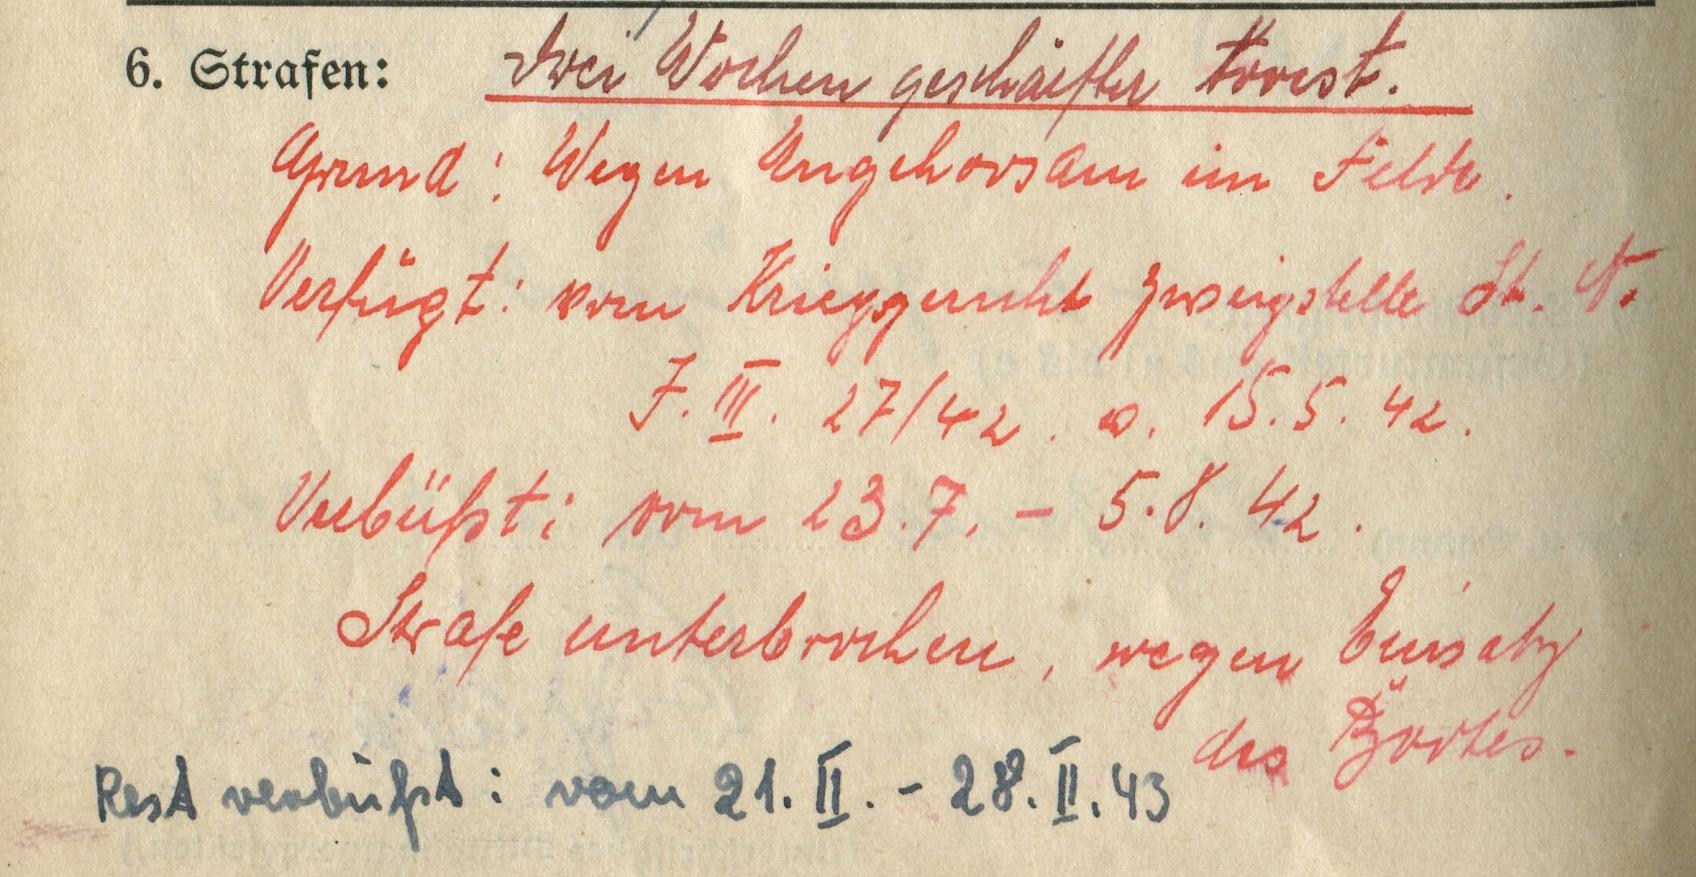 6. Strafen: Drei Wochen geschärfter Arrest.
Grund: Wegen Ungehorsam im Felde.
Verfügt: vom Kriegsgericht Zweigstelle St. N.
J. III. 27/42. v. 15.5.42.
Verbüßt: vom 23.7. – 5.8.42.
Strafe unterbrochen, wegen Einsatz
des Bootes.
Rest verbüßt: vom 21. II. - 28. II. 43